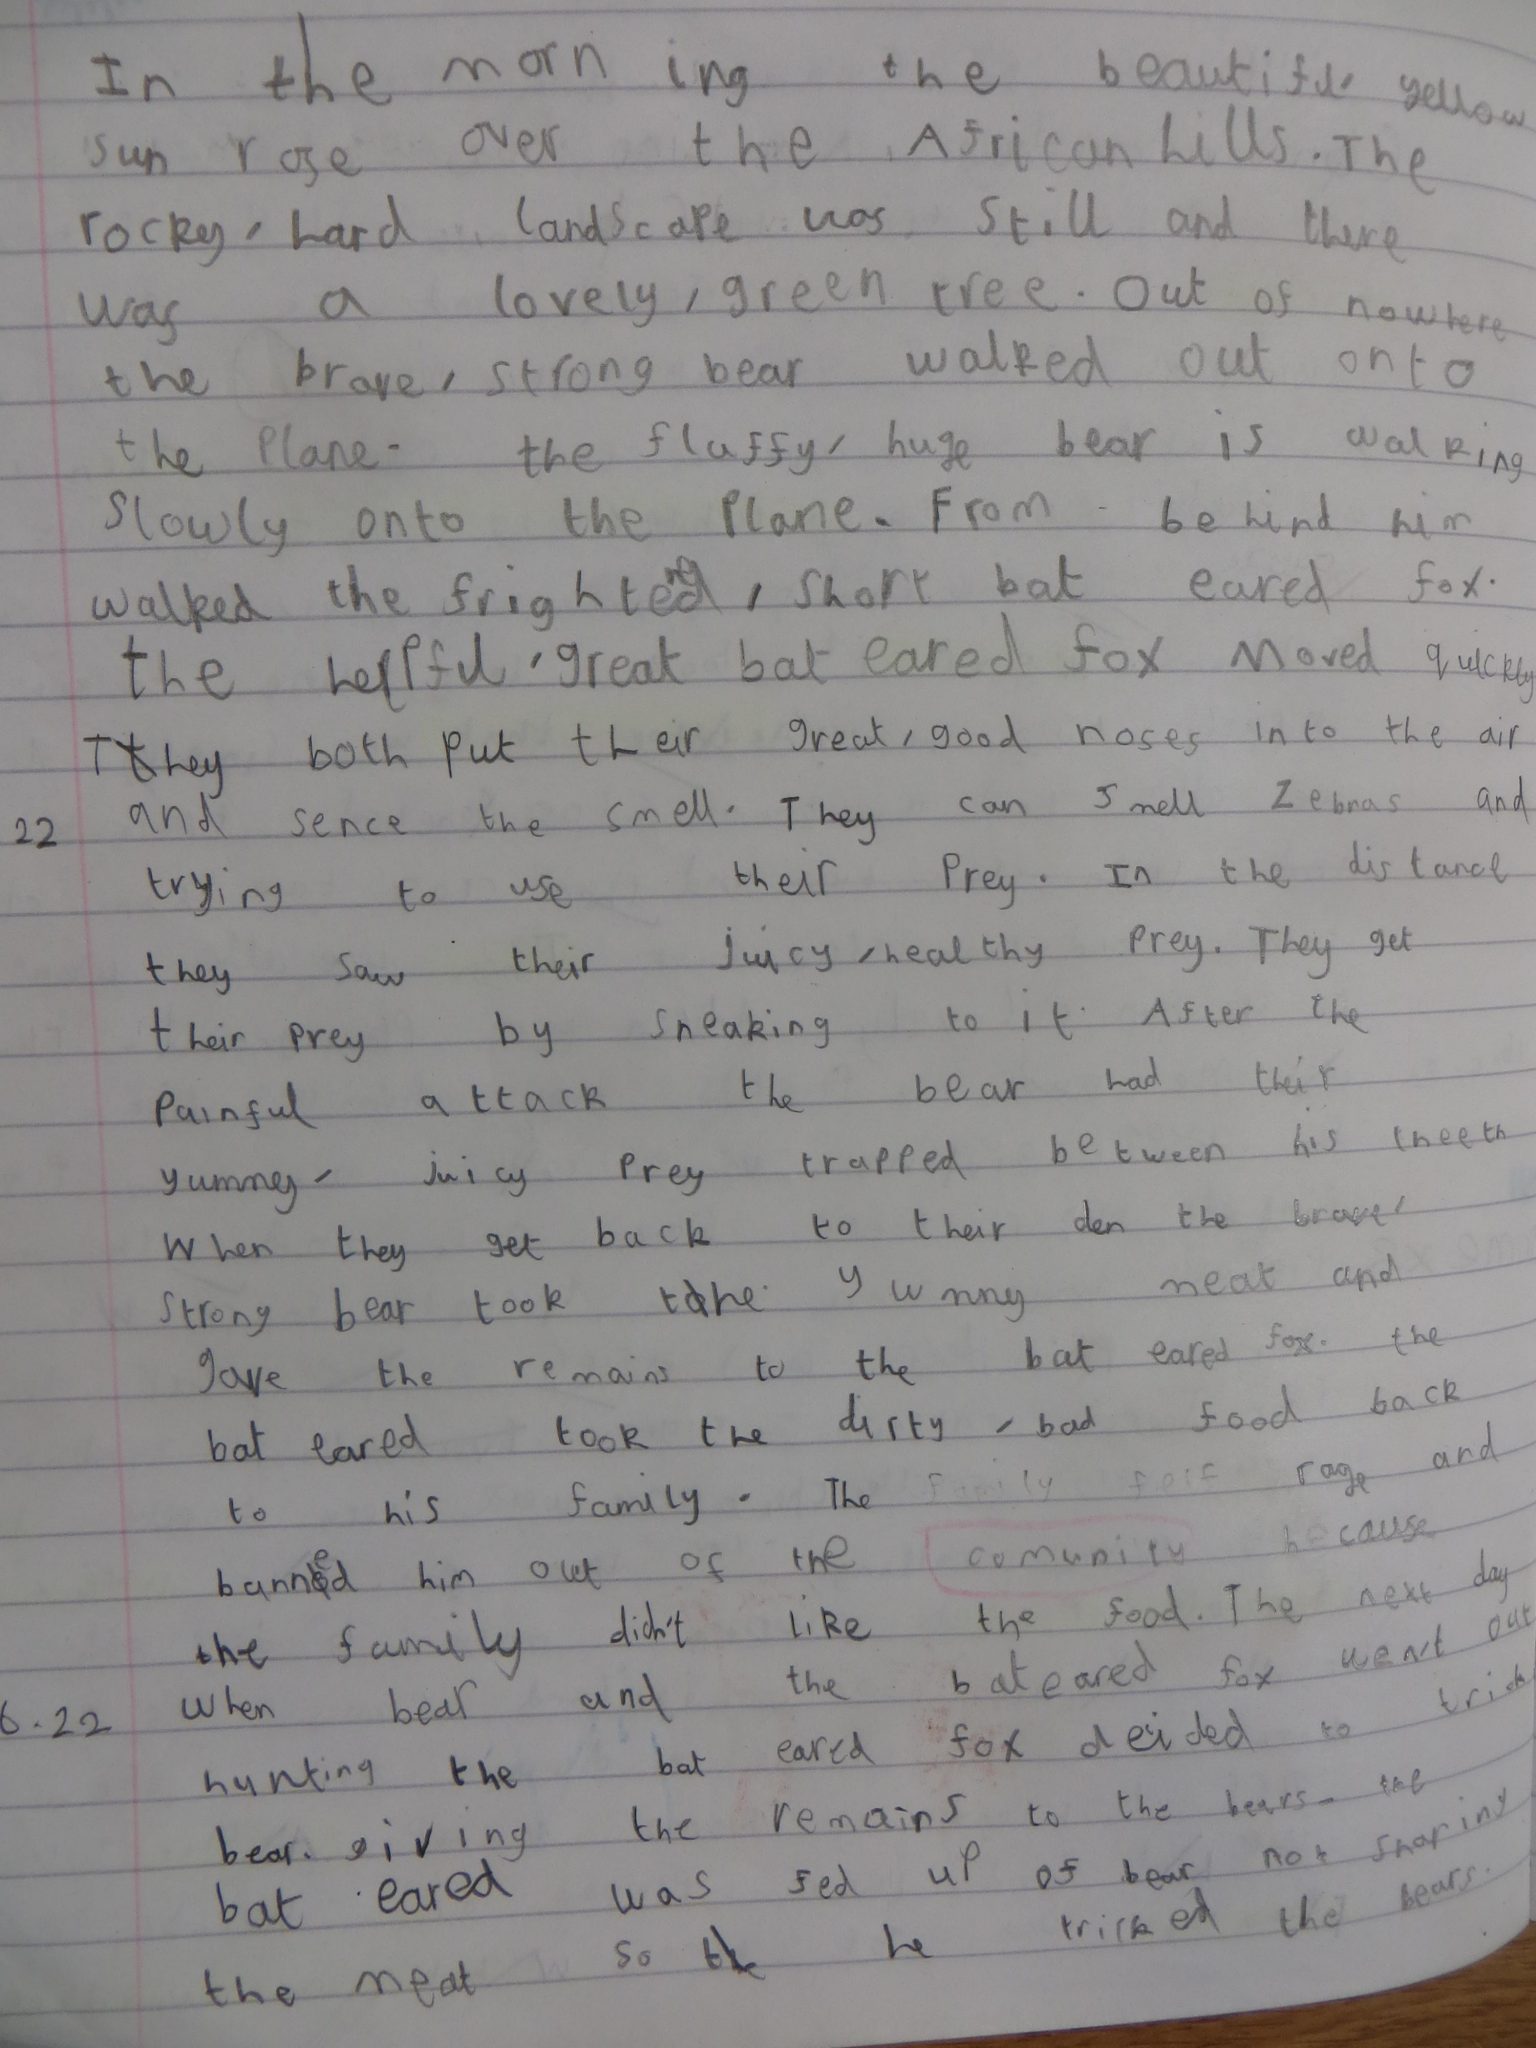 In the morn ing the beautiful yellow
sun rose over the African hills. The
rocky, hard landscape was still and there
was a lovely, green tree. Out of nowhere
the brave, strong bear walked out onto
the plane. the fluffy, huge bear is walking
slowly onto the plane. From behind him
walked the frightened, short bat eared fox.
the helpful, great bat eared fox moved quickly
They both put their great, good noses into the air
22 and sence the smell. They can smell zebras and
trying to use their prey. In the distance
they saw their juicy, healthy prey. They get
their prey by sneaking to it. After the
painful attack the bear had their
yummey, juicy prey trapped between his theeth
When they get back to their den the brave,
strong bear took the yummy meat and
gave the remains to the bat eared fox. the
bat eared took the dirty, bad food back
to his family. The family rage and
banned him out of the comunity because
the family didn't like the food. The next day
6.22 when bear and the bat eared fox went out
hunting the bat eared fox deided to trick
bear. giving the remains to the bears. the
bat eared was fed up of bear not sharing
the meat so he tricked the bears.